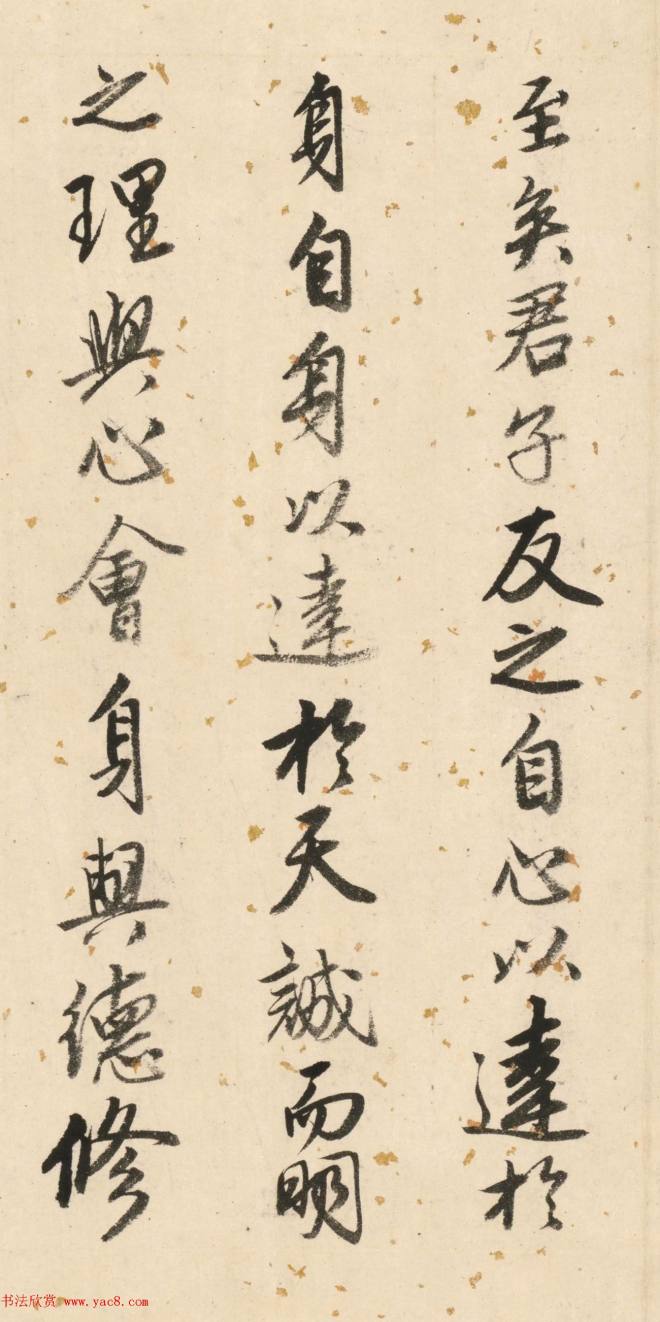 至矣君子反之自心以達於
身自身以達於天誠而明
之理與心會身與德修
书法欣赏 www.yac8.com